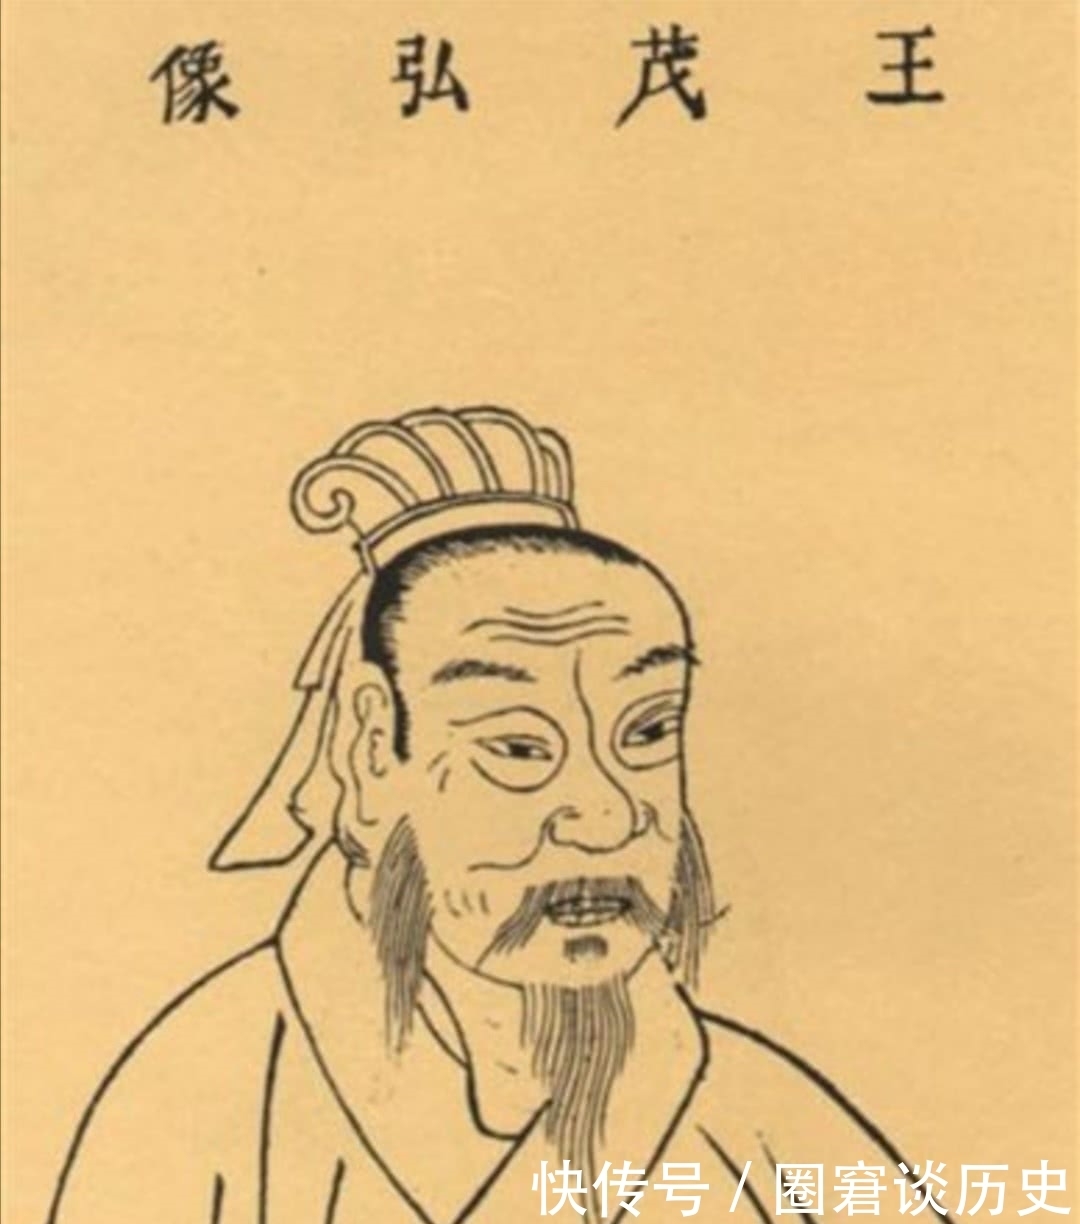 王茂弘像
快传号/圈窘谈历史